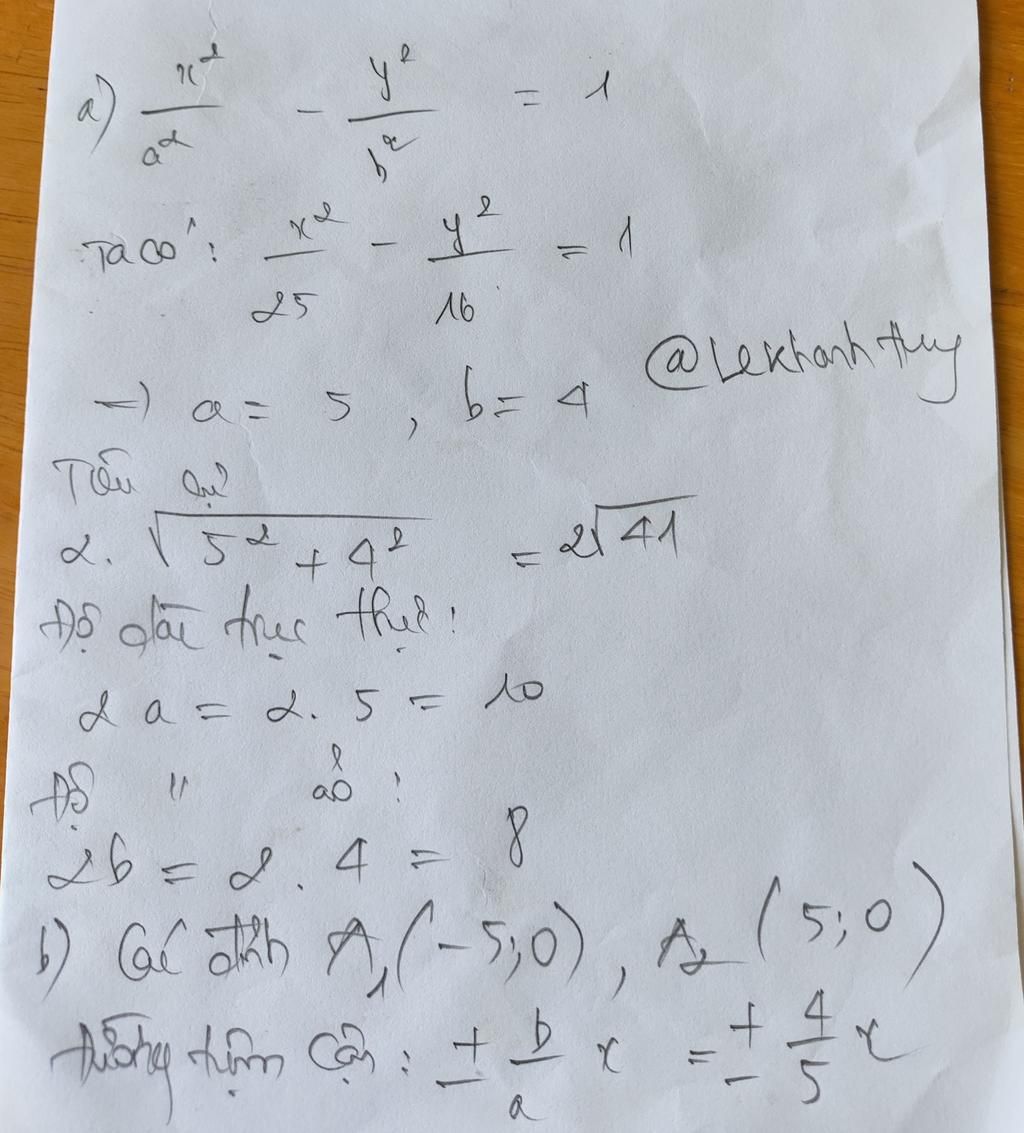 a) x²/a² - y²/b² = 1
Ta có: x²/25 - y²/16 = 1
=) a = 5, b = 4
@Lekhanh thuy
Tiêu cự
2. √(5² + 4²) = 2√41
Độ dài trục thực:
2a = 2. 5 = 10
Độ " ảo:
2b = 2. 4 = 8
b) Các đỉnh A₁(-5;0), A₂(5;0)
đường tiệm cận: ± b/a x = ± 4/5 x